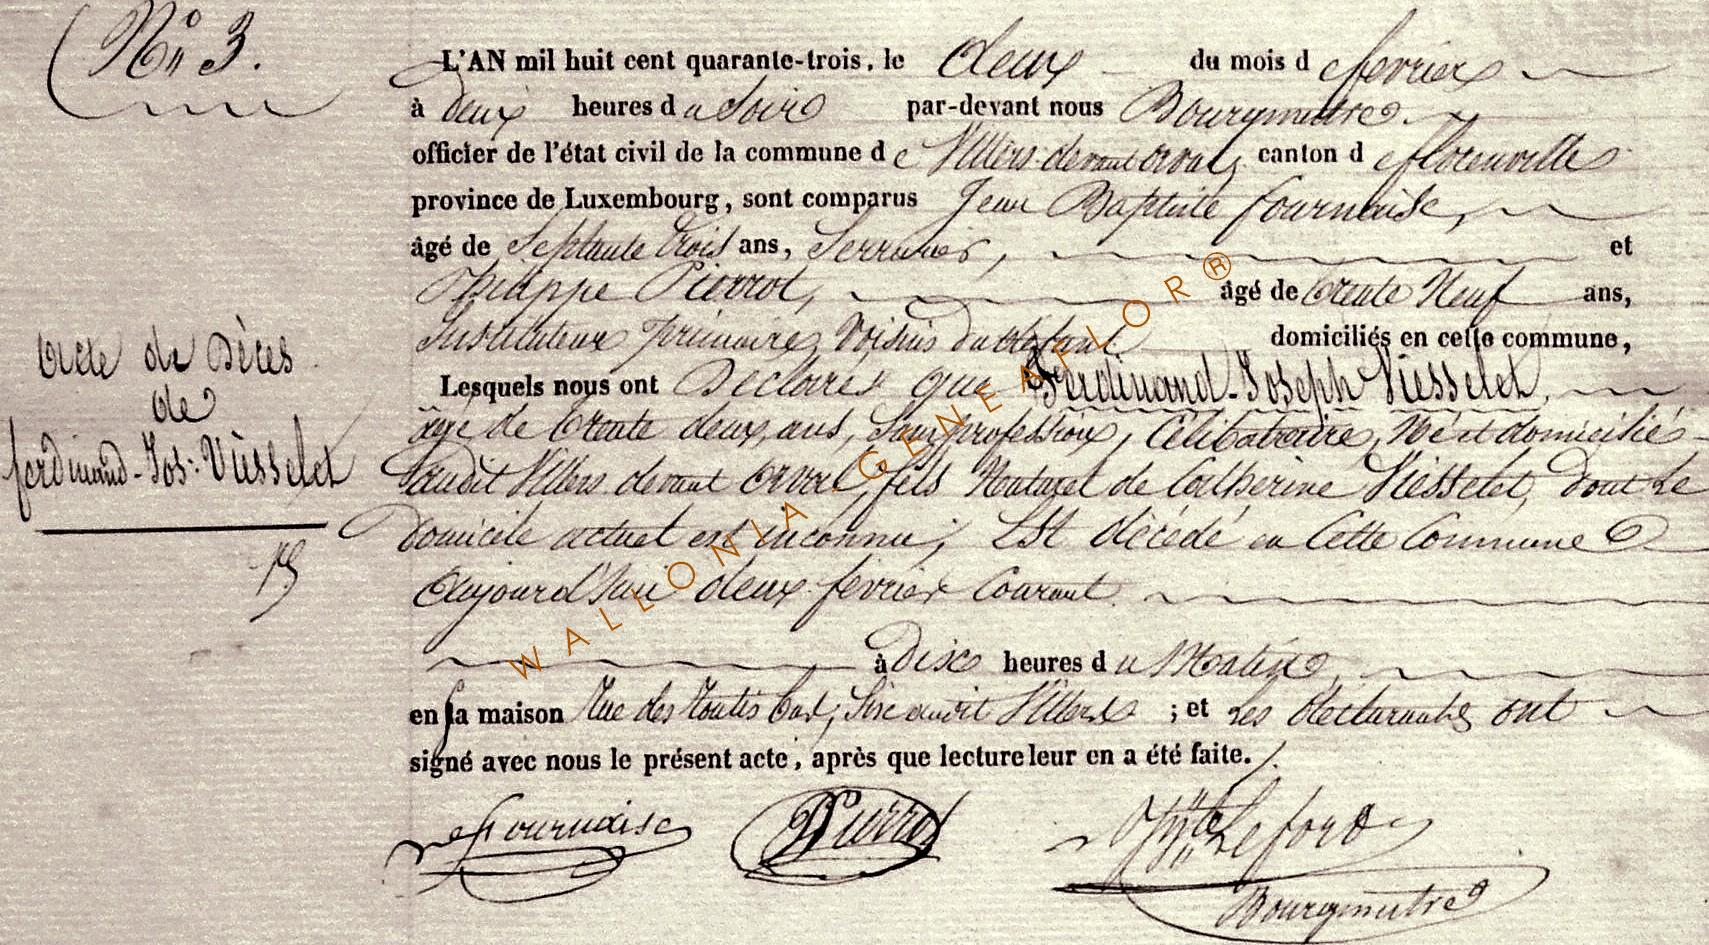 N° 3.
L'AN mil huit cent quarante-trois, le deux du mois de fevrier
à deux heures du soir par-devant nous Bourgmestre
officier de l'état civil de la commune de Villers devant orval, canton de florenville
province de Luxembourg, sont comparus Jean Baptiste fournaise,
âgé de Septante trois ans, Serrurier, et
Philippe Pierrot, âgé de trente Neuf ans,
Instituteur primaire, Voisins du défunt domiciliés en cette commune,
Lesquels nous ont Déclarés que Ferdinand-Joseph Viesselet,
âgé de trente deux ans, Sans profession, Célibataire, Né et domicilié
audit Villers devant orval, fils Naturel de Catherine Viesselet, dont le
domicile actuel est inconnu; Est décédé en Cette Commune
Aujourd'hui deux fevrier Courant
à Dix heures du Matin
en sa maison Rue des bas; Sise audit Villers ; et les déclarants ont
signé avec nous le présent acte, après que lecture leur en a été faite.
Acte de Décès
de
ferdinand-Jos: Viesselet
Fournaise Pierrot Leford
Bourgmestre
WALLONIA GENEAFLOR®